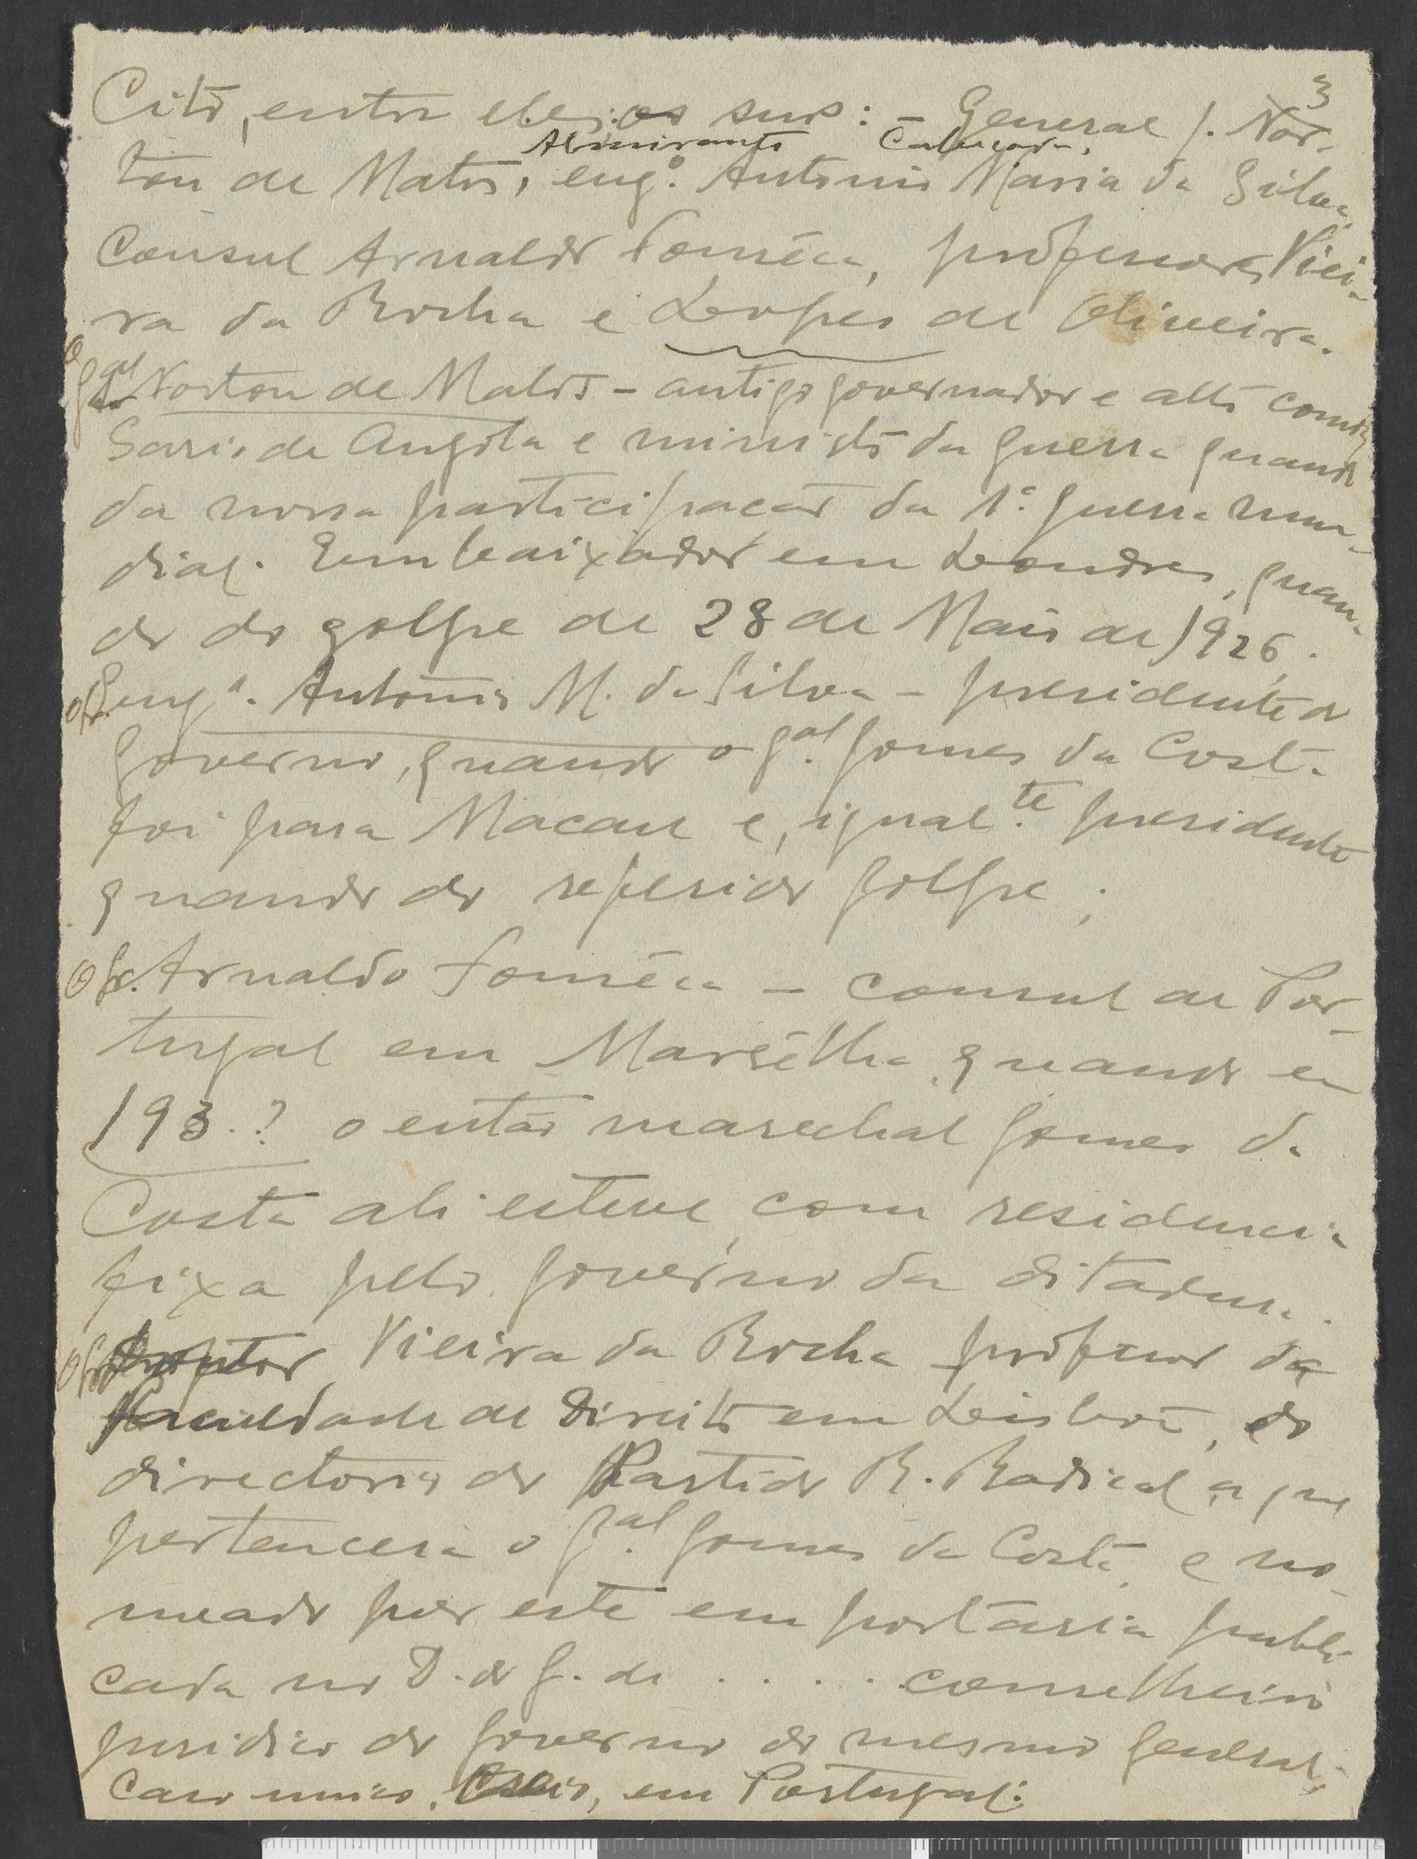 3
Cito, entre eles, os snrs: - General J. Nor-
Almirante Cabeçadas,
ton de Matos, eng.º Antonio Maria da Silva,
Consul Arnaldo Fonsêca, professores Viei-
ra da Rocha e Lopes de Oliveira.
O Gal Norton de Matos - antigo governador e alto comis-
sario de Angola e ministro da guerra quando
da nossa participação da 1.ª guerra mun-
dial. Embaixador em Londres, quan-
do do golpe de 28 de Maio de 1926.
O Sr. Eng.º Antonio M. da Silva - presidente do
Governo, quando o gal. Gomes da Costa
foi para Macau e, igual.te presidente
quando do referido golpe;
O Sr. Arnaldo Fonsêca - consul de Por-
tugal em Marsêlha, quando em
193.? o então marechal Gomes da
Costa ali esteve, com residencia
fixa pelo govêrno da ditadura.
O Vieira da Rocha professor da
Faculdade de Direito em Leisboa, do
directorio do Partido R. Radical a que
pertencera o gal. Gomes da Costa, e no-
meado por este em portaria publi-
cada no D. do G. de . . . . . conselheiro
juridico do governo do mesmo general;
caso unico, em Portugal.